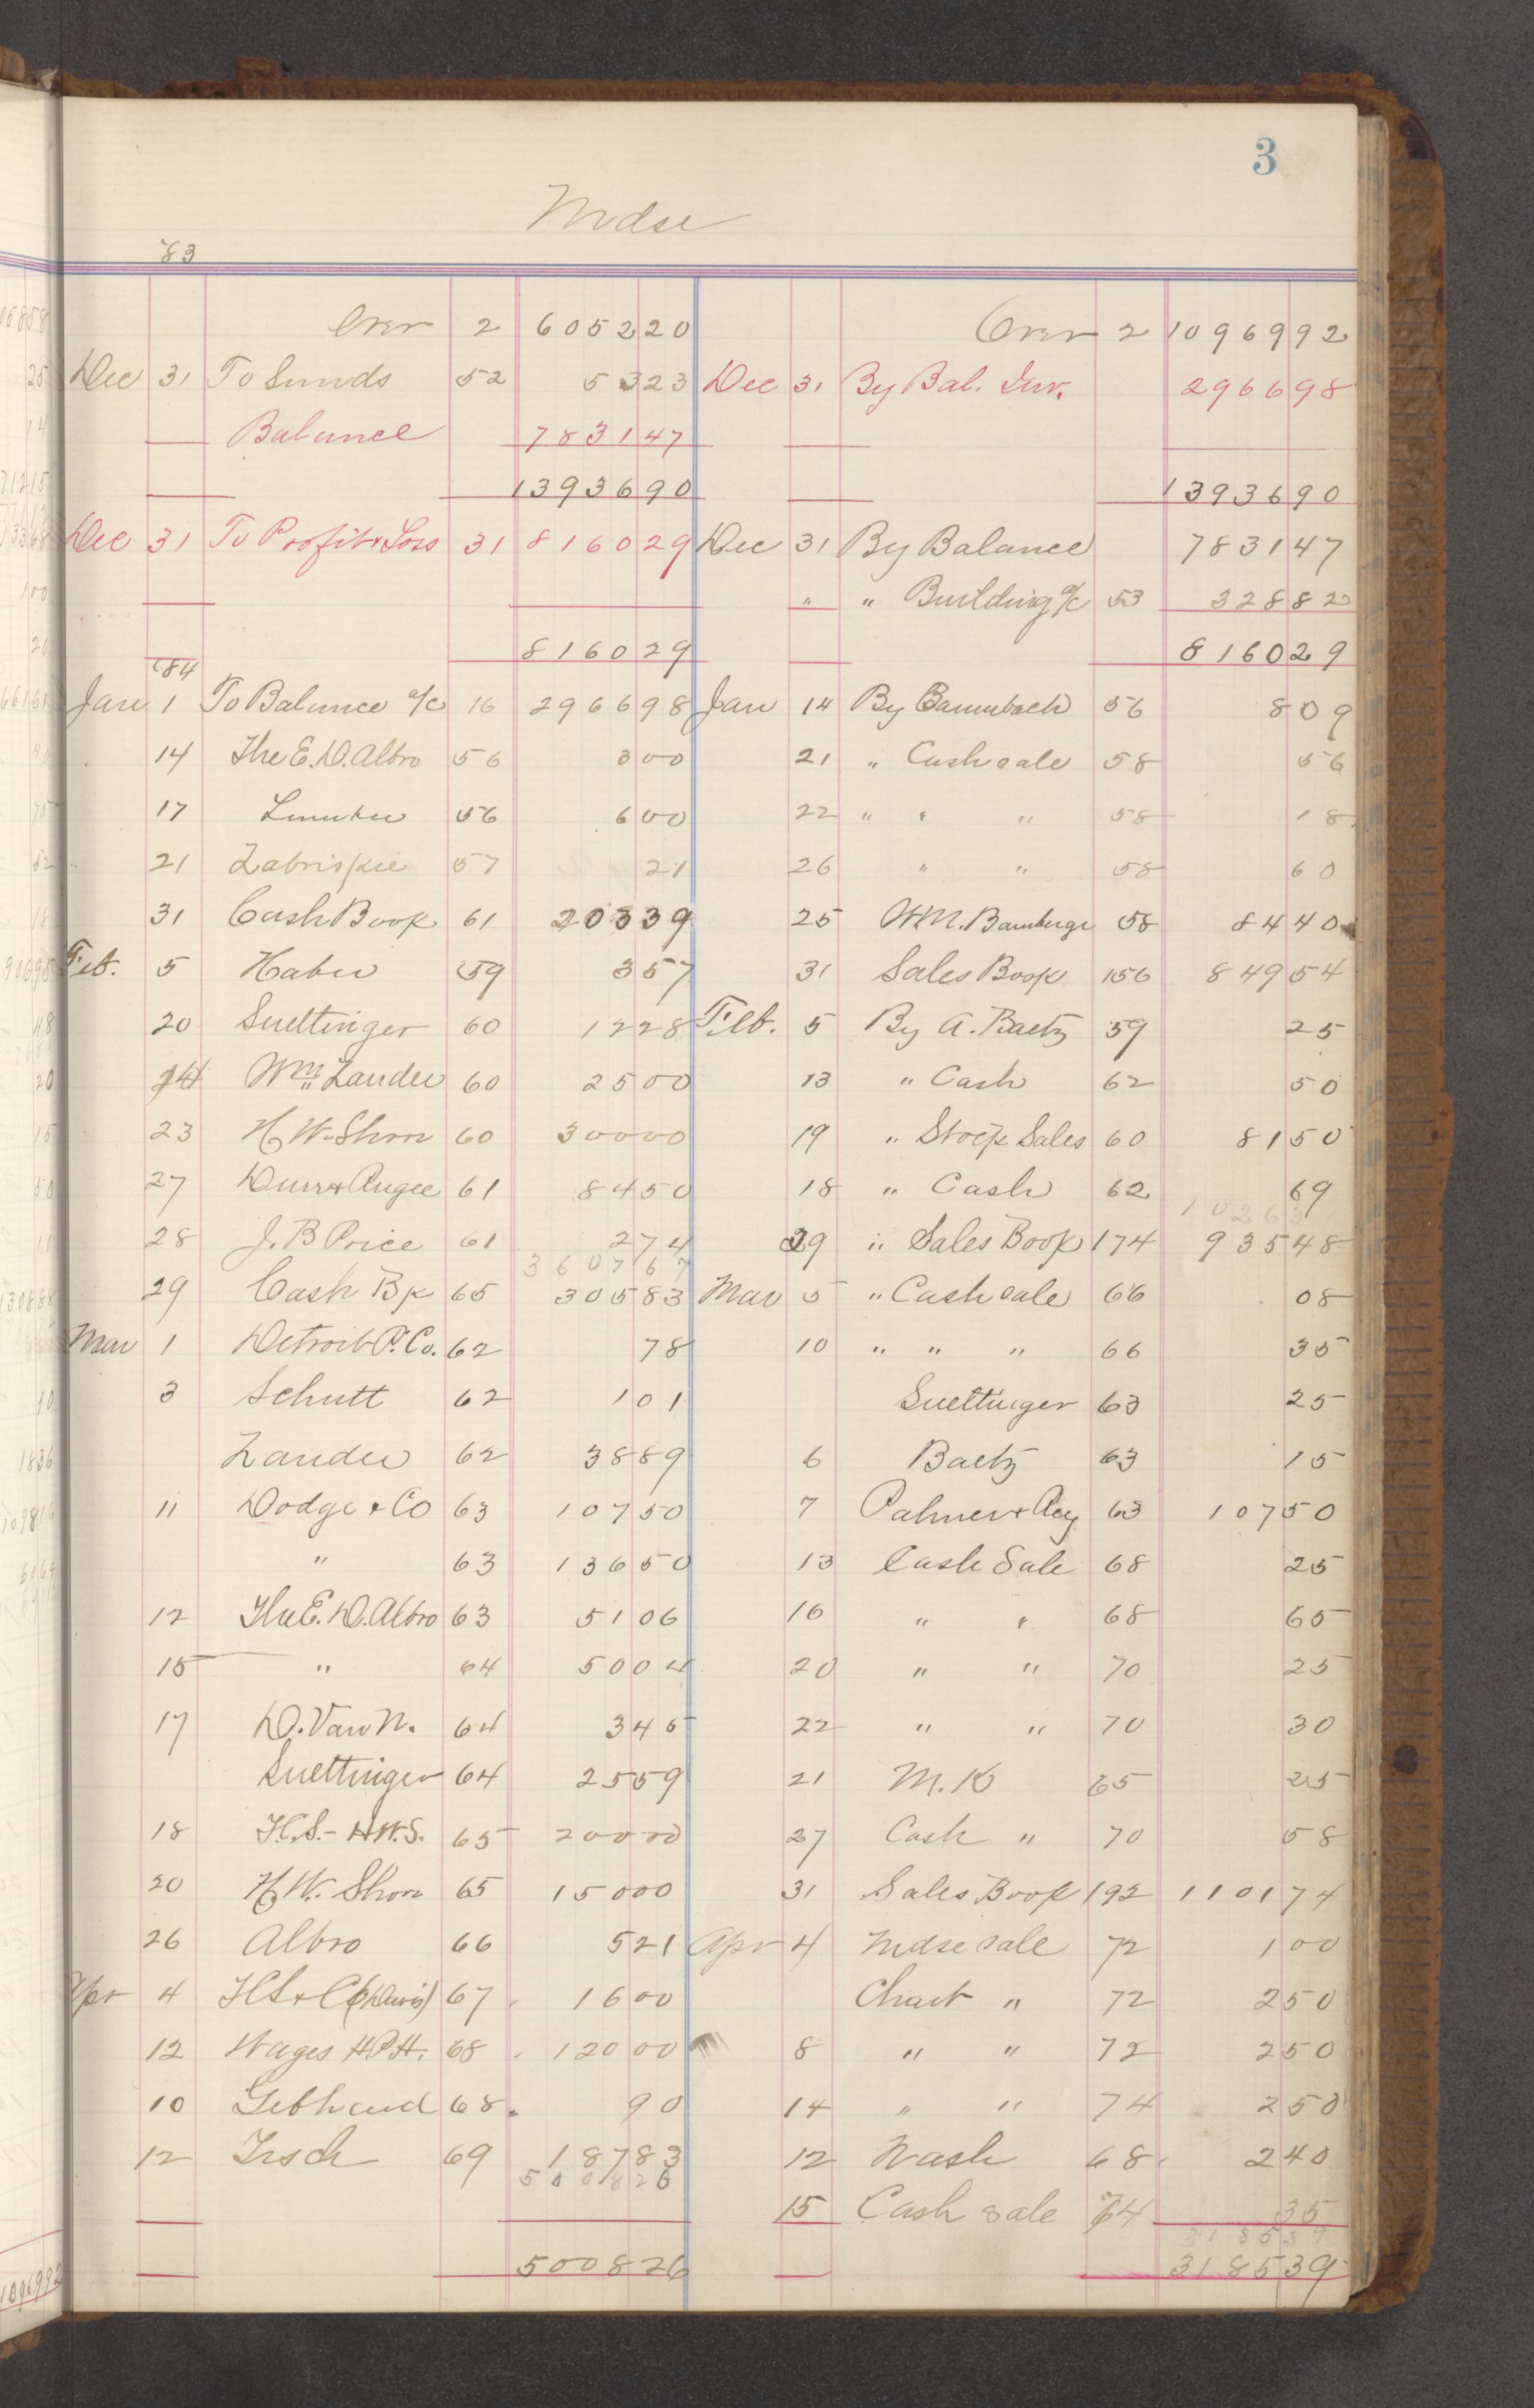 3
Mdse
'83
Over 2 6052 20 Over 2 10969 92
Dec 31 To Sunds 52 53 23 Dec 31 By Bal. Inv. 2966 98
Balance 7831 47
13936 90 13936 90
Dec 31 To Profit & Loss 31 8160 29 Dec 31 By Balance 7831 47
" " Building a/c 53 328 82
8160 29 8160 29
'84
Jan 1 To Balance a/c 16 2966 98 Jan 14 By Bamubach 56 8 09
14 The E. D. Albro 56 3 00 21 " Cash sale 58 56
17 56 6 00 22 " " " 58 18
21 Zabriskie 57 21 26 " " 58 60
31 Cash Book 61 203 39 25 58 84 40
Feb. 5 Haber 59 3 57 31 Sales Book 156 849 54
20 Suettinger 60 12 28 Feb. 5 By A. Baetz 59 25
14 Wm Zander 60 25 00 13 " Cash 62 50
23 H. W. Shon 60 300 00 19 " Stock Sales 60 81 50
27 Durr & Rugee 61 84 50 18 " Cash 62 69
28 J. B Price 61 2 74 29 " Sales Book 174 935 48
3607 67
29 Cash Bk 65 305 83 Mar 5 " Cash sale 66 08
Mar 1 Detroit P. Co. 62 78 10 " " " 66 35
3 Schutt 62 1 01 Suettinger 63 25
Zander 62 38 89 6 Baetz 63 15
11 Dodge & Co 63 107 50 7 Palmer & Rey 63 107 50
" 63 136 50 13 Cash Sale 68 25
12 The E. D. Albro 63 51 06 16 " " 68 65
15 " 64 50 04 20 " " 70 25
17 D. Van N. 64 3 45 22 " " 70 30
Suettinger 64 25 59 21 M. K 65 25
18 H.S. - H.W.S. 65 200 00 27 Cash " 70 58
20 H. W. Shon 65 150 00 31 Sales Book 192 1101 74
26 Albro 66 5 21 Apr 4 Mdse sale 72 1 00
Apr 4 67 16 00 Chart " 72 2 50
12 Wages H.P.H. 68 120 00 8 " " 72 2 50
10 Gebhard 68 90 14 " " 74 2 50
12 Irsch 69 187 83 12 Wash 68 2 40
5008 26
15 Cash sale 74 35
3185 39
5008 26 3185 39